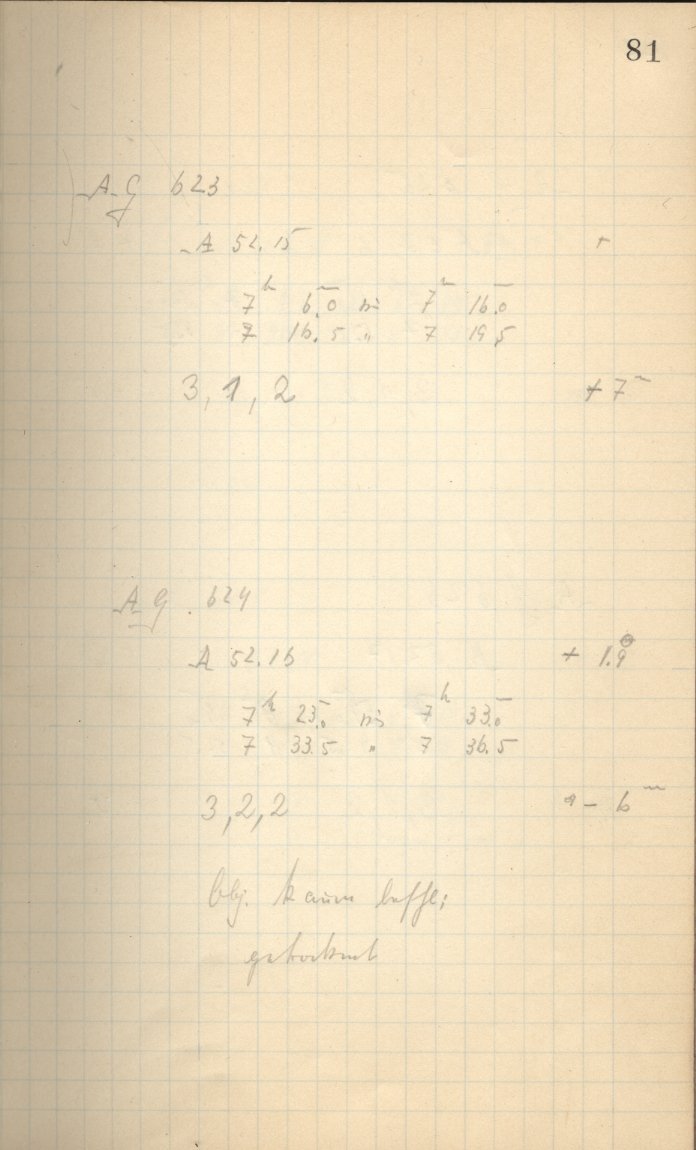 81
A.G 623
A 52.15 +
7h 6m.0 bis 7h 16m.0
7 16.5 " 7 19.5
3, 1, 2 + 7m
A.G. 624
A 52.16 + 1.9
7h 23m.0 bis 7h 33m.0
7 33.5 " 7 36.5
3, 2, 2 - 6m
Obj. kaum beschl;
getrocknet